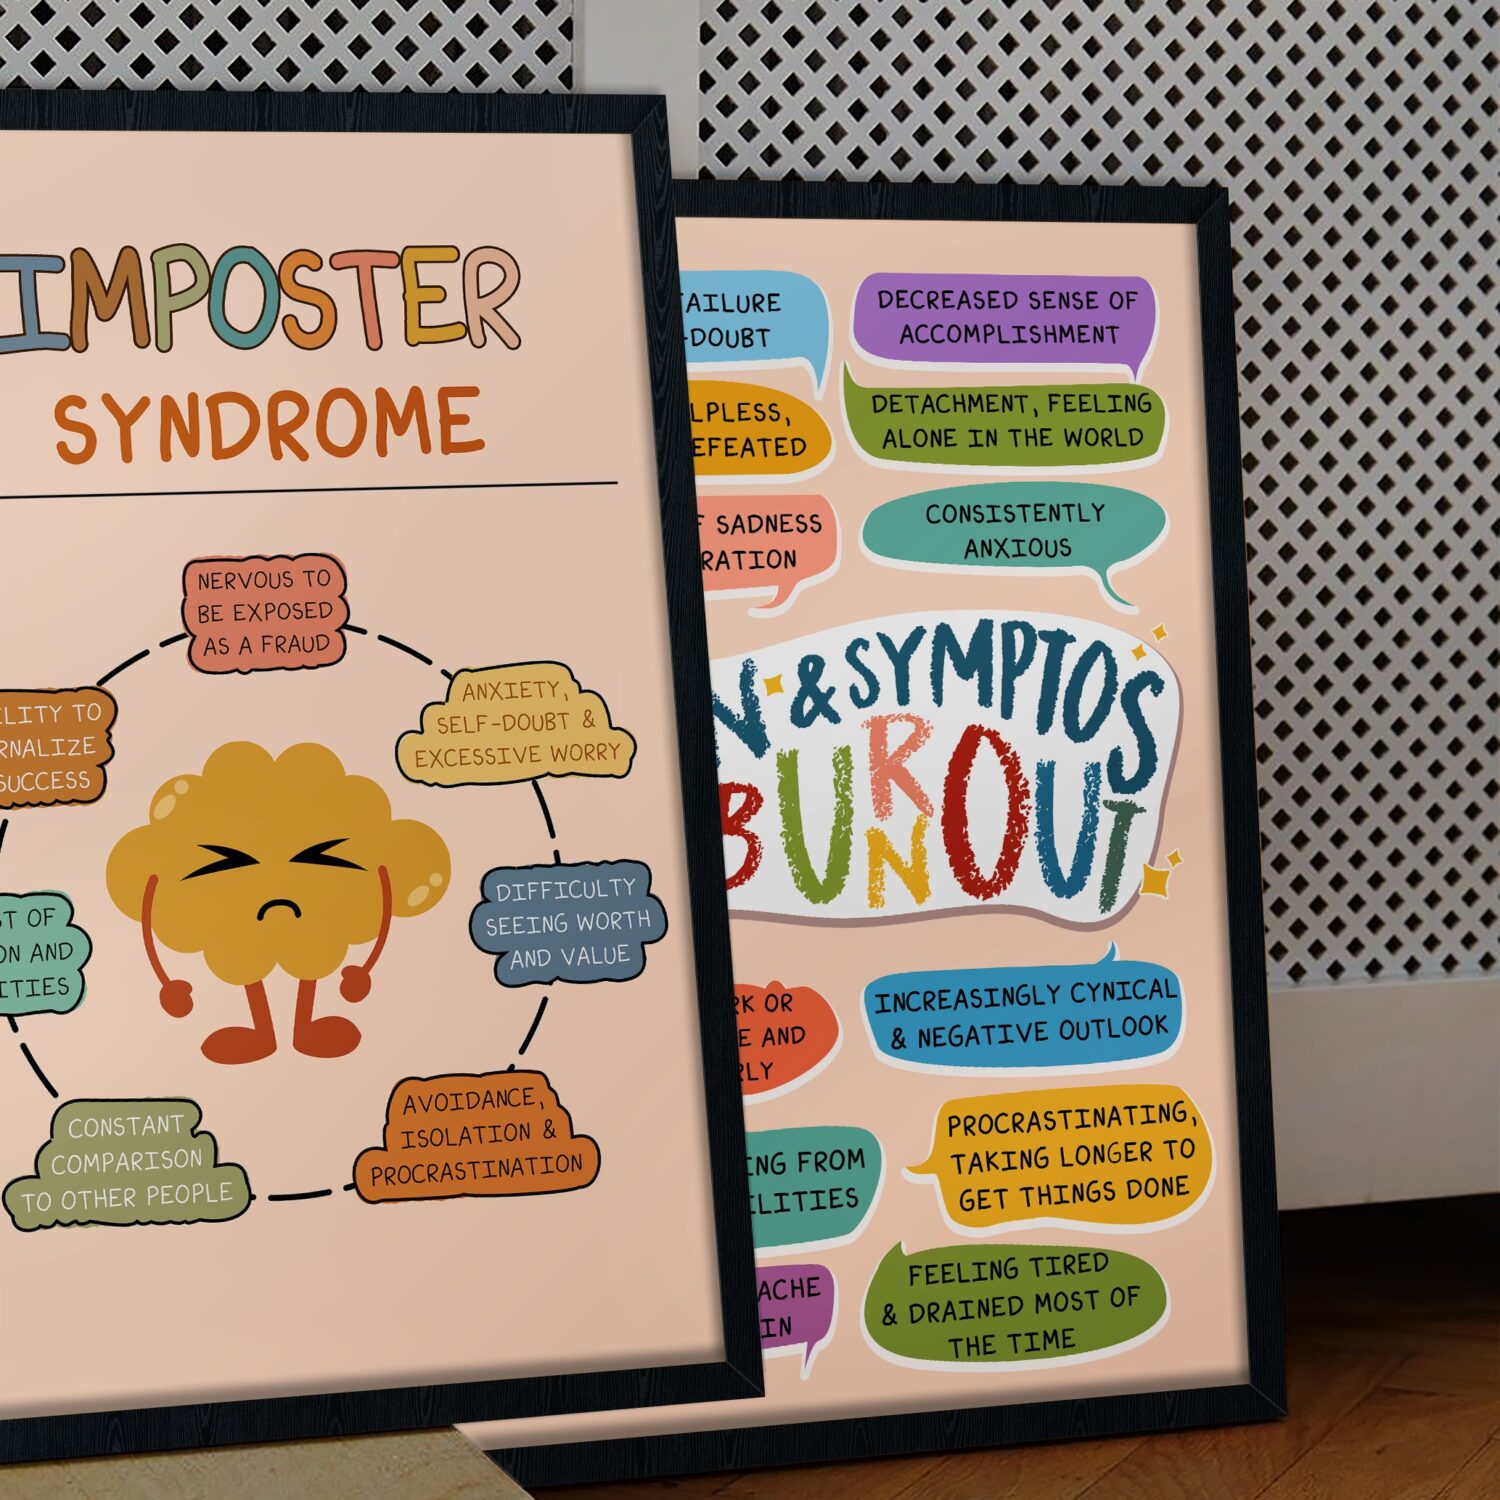 IMPOSTER
SYNDROME
NERVOUS TO
BE EXPOSED
AS A FRAUD
ANXIETY,
SELF-DOUBT &
EXCESSIVE WORRY
DIFFICULTY
SEEING WORTH
AND VALUE
AVOIDANCE,
ISOLATION &
PROCRASTINATION
CONSTANT
COMPARISON
TO OTHER PEOPLE
ST OF
ON AND
ITIES
LITY TO
RNALIZE
SUCCESS
AILURE
-DOUBT
DECREASED SENSE OF
ACCOMPLISHMENT
LPLESS,
EFEATED
DETACHMENT, FEELING
ALONE IN THE WORLD
F SADNESS
RATION
CONSISTENTLY
ANXIOUS
N & SYMPTOS
BURNOUT
RK OR
E AND
RLY
INCREASINGLY CYNICAL
& NEGATIVE OUTLOOK
ING FROM
ILITIES
PROCRASTINATING,
TAKING LONGER TO
GET THINGS DONE
ACHE
IN
FEELING TIRED
& DRAINED MOST OF
THE TIME